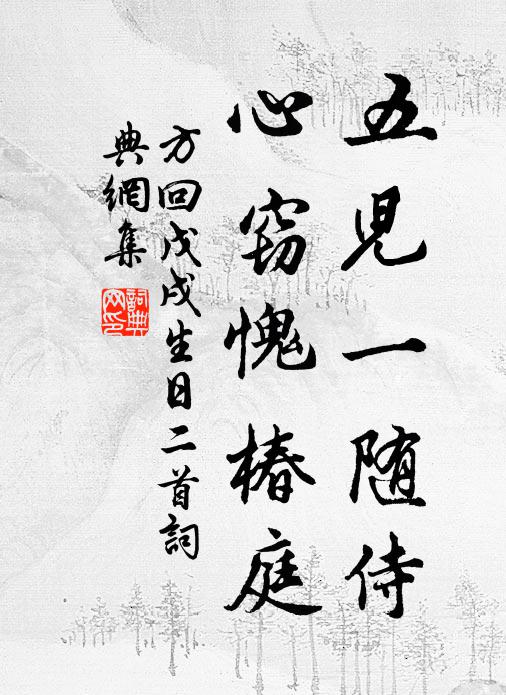 五児一随侍
心窃愧椿庭
方回戊戌生日二首詞
典網集
詞典网印